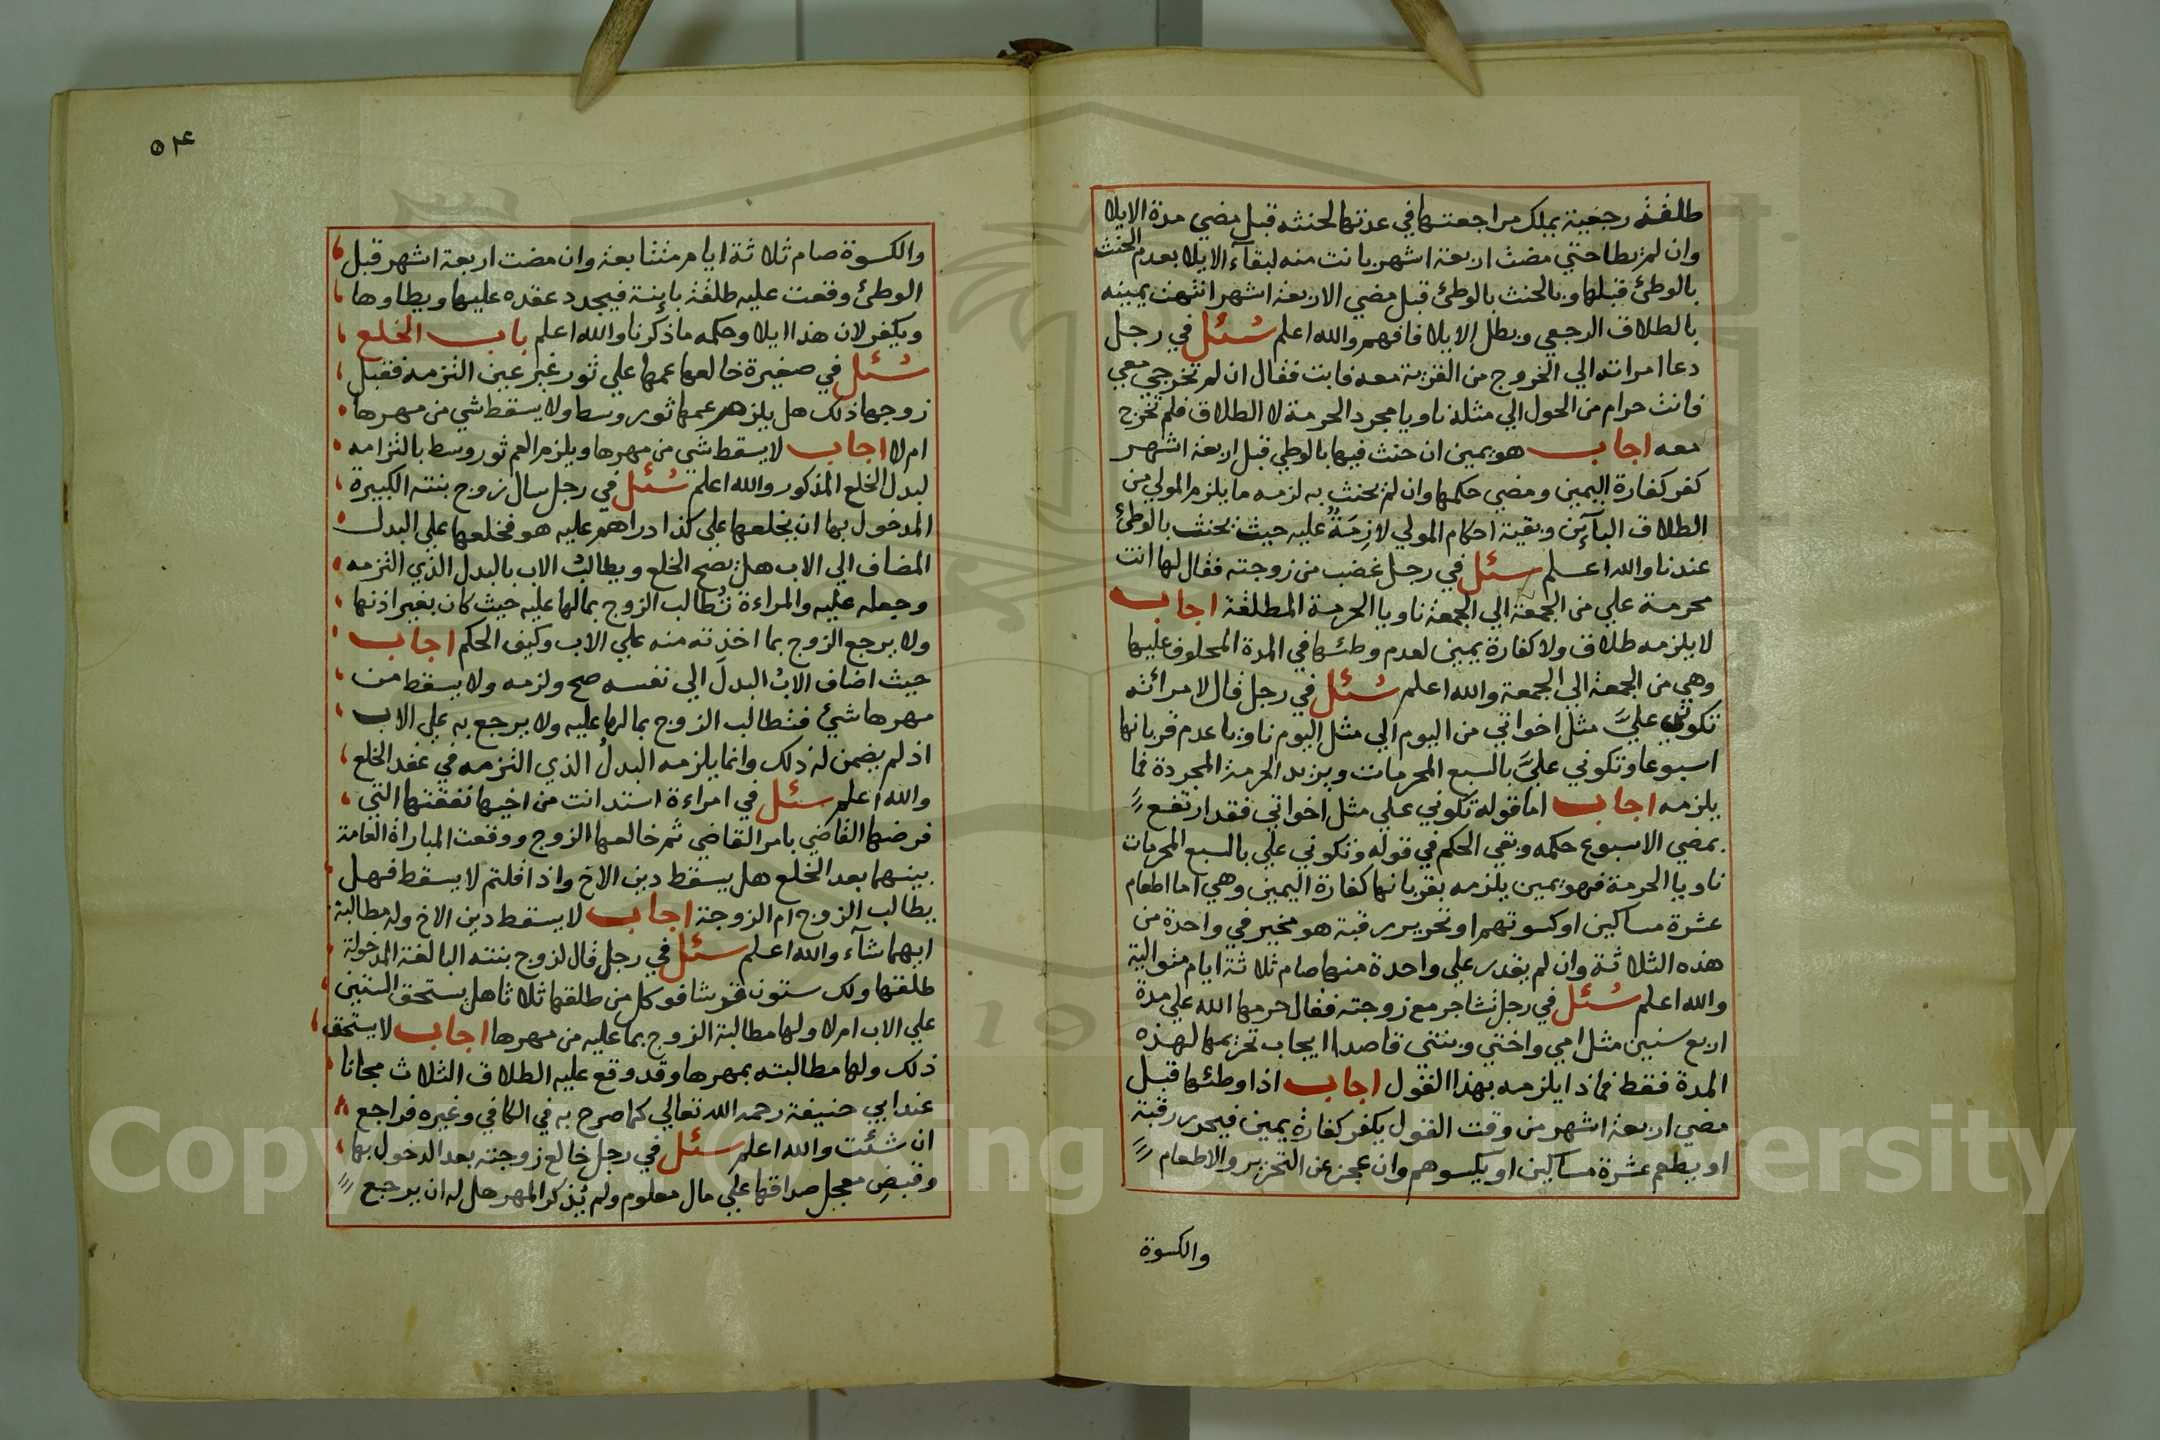 طلقة رجعية يملك مراجعتها في عدتها لحنثه قبل مضي مدة الايلا
وان لم يطا حتي مضت اربعة اشهر بانت منه لبقآء الايلا بعدم الحنث
بالوطئ قبلها وبالحنث بالوطئ قبل مضي الاربعة اشهر انتهت يمينه
بالطلاق الرجعي وبطل الايلا فافهم والله اعلم سُئل في رجل
دعا امراته الي الخروج من القرية معه فابت فقال ان لم تخرجي معي
فانت حرام من الحول الي مثله ناويا مجرد الحرمة لا الطلاق فلم تخرج
معه اجاب هو يمين ان حنث فيها بالوطي قبل اربعة اشهر
كفر كفارة اليمين ومضي حكمها وان لم يحنث به لزمه ما يلزم المولي من
الطلاق البآئن وبقية احكام المولي لازِمَةٌ عليه حيث لم يحنث بالوطئ
عندنا والله اعلم سئل في رجل غضب من زوجته فقال لها انت
محرمة علي من الجمعة الي الجمعة ناويا الحرمة المطلقة اجاب
لا يلزمه طلاق ولا كفارة يمين لعدم وطئها في المدة المحلوف عليها
وهي من الجمعة الي الجمعة والله اعلم سُئل في رجل قال لامراته
تكوني عليَّ مثل اخواتي من اليوم الي مثل اليوم ناويا عدم قربانها
اسبوعا وتكوني عليَّ بالسبع المحرمات ويريد الحرمة المجردة فما
يلزمه اجاب اما قوله تكوني علي مثل اخواتي فقد ارتفع
بمضي الاسبوع حكمه وبقي الحكم في قوله وتكوني علي بالسبع المحرمات
ناويا الحرمة فهو يمين يلزمه بقربانها كفارة اليمين وهي اما اطعام
عشرة مساكين او كسوتهم او تحرير رقبة هو مخير في واحدة من
هذه الثلاثة وان لم يقدر علي واحدة منها صام ثلاثة ايام متوالية
والله اعلم سُئل في رجل تشاجر مع زوجته فقال حرمها الله علي مدة
اربع سنين مثل امي واختي وبنتي قاصدا ايجاب تحريمها لهذه
المدة فقط فماذا يلزمه بهذا القول اجاب اذا وطئها قبل
مضي اربعة اشهر من وقت القول يكفر كفارة يمين فيحرر رقبة
او يطعم عشرة مساكين او يكسوهم وان عجز عن التحرير والاطعام
والكسوة
٥٤
والكسوة صام ثلاثة ايام متتابعة وان مضت اربعة اشهر قبل
الوطئ وقعت عليه طلقة بائنة فيجدد عقده عليها ويطاوها
ويكفر لان هذا ايلا وحكمه ما ذكرنا والله اعلم باب الخلع
سُئل في صغيرة خالعها عمها علي ثور غير عين التزمه فقبل
زوجها ذلك هل يلزم عمها ثور وسط ولا يسقط شي من مهرها
ام لا اجاب لا يسقط شي من مهرها ويلزم العم ثور وسط بالتزامه
لبدل الخلع المذكور والله اعلم سُئل في رجل سال زوج بنته الكبيرة
المدخول بها ان يخلعها علي كذا دراهم عليه هو فخلعها علي البدل
المضاف الي الاب هل يصح الخلع ويطالبُ الاب بالبدل الذي التزمه
وجعله عليه والمراءة تُطالب الزوج بمالها عليه حيث كان بغير اذنها
ولا يرجع الزوج بما اخذته منه علي الاب وكيف الحكم اجاب
حيث اضاف الابُ البدلَ الي نفسه صح ولزمه ولا يسقط من
مهرها شئ فتطالب الزوج بمالها عليه ولا يرجع به علي الاب
اذ لم يضمن له ذلك وانما يلزمه البدلُ الذي التزمه في عقد الخلع
والله اعلم سئل في امراءة استدانت من اخيها نفقتها التي
فرضها القاضي بامر القاضي ثم خالعها الزوج ووقعت المباراة العامة
بينهما بعد الخلع هل يسقط دين الاخ واذا قلتم لا يسقط فهل
يطالب الزوج ام الزوجة اجاب لا يسقط دين الاخ وله مطالبة
ايهما شآء والله اعلم سئل في رجل قال لزوج بنته البالغة المدخولة
طلقها ولك ستون قرشا فوكل من طلقها ثلاثا هل يستحق الستين
علي الاب ام لا ولها مطالبة الزوج بما عليه من مهرها اجاب لا يستحق
ذلك ولها مطالبته بمهرها وقد وقع عليه الطلاق الثلاث مجانا
عند ابي حنيفة رحمه الله تعالي كما صرح به في الكافي وغيره فراجع
ان شئت والله اعلم سئل في رجل خالع زوجته بعد الدخول بها
وقبضِ معجل صداقها علي مال معلوم ولم يُذكر المهر هل له ان يرجع
Copyright © King Saud University